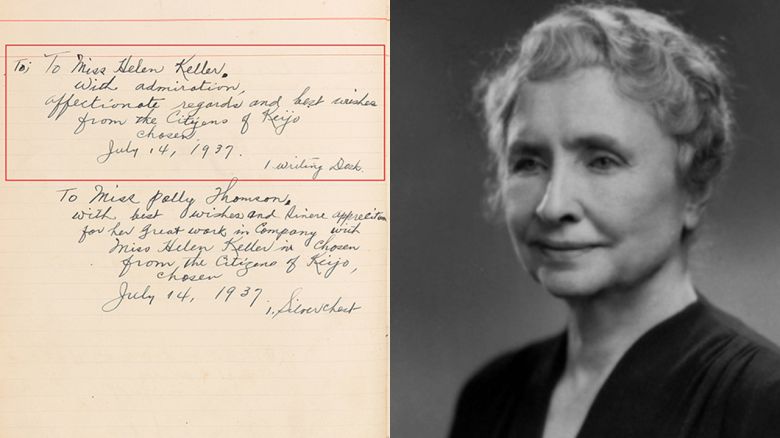 To; To Miss Helen Keller.
With admiration,
affectionate regards and best wishes
from the Citizens of Keijo
chosen.
July 14, 1937.
1. writing Desk.
To Miss Polly Thomson.
with best wishes and Sinere appreciation
for her Great work in Company with
Miss Helen Keller in Chosen
from the Citizens of Keijo,
chosen
July 14, 1937
1. Silver chest